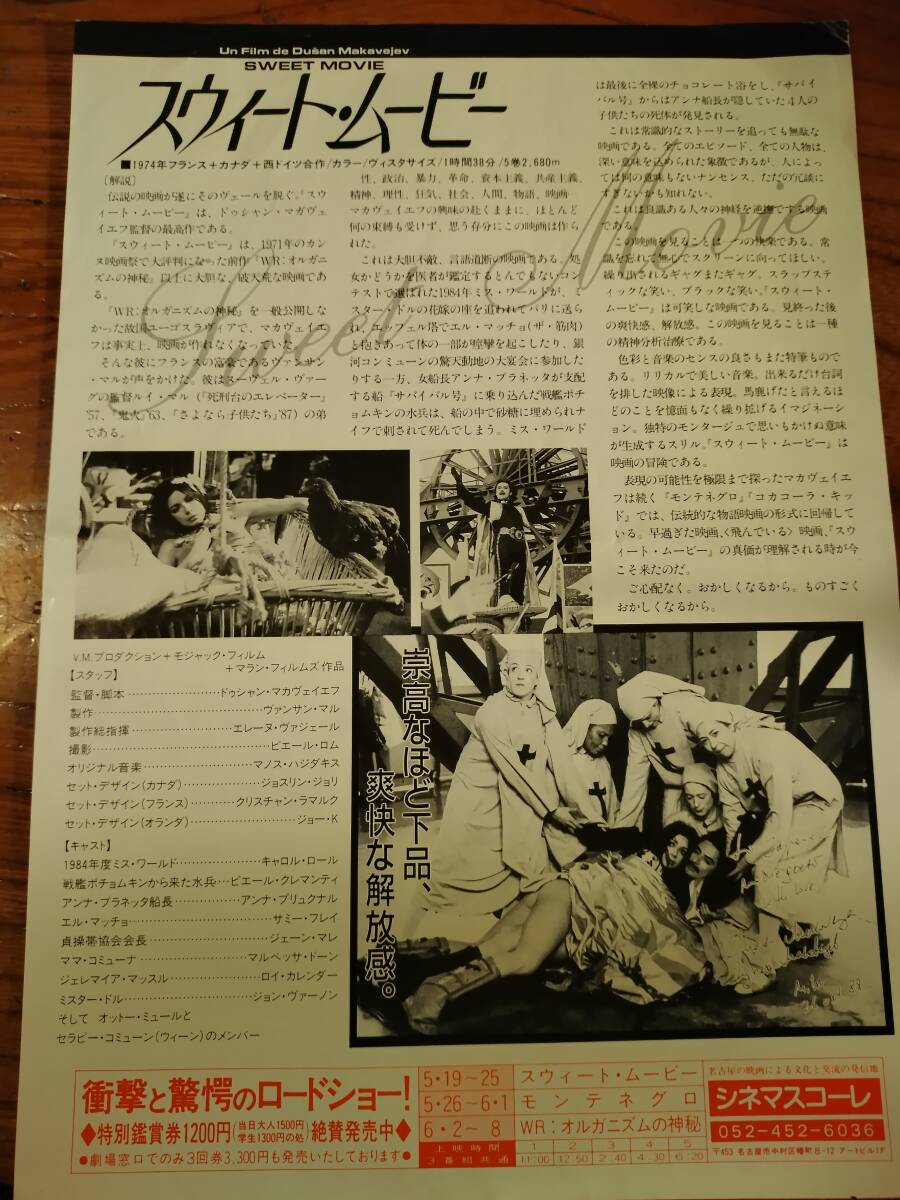 Un Film de Dušan Makavejev
SWEET MOVIE
スウィート・ムービー
■1974年フランス+カナダ+西ドイツ合作/カラー/ヴィスタサイズ/1時間38分/5巻2,680m
〔解説〕
伝説の映画が遂にそのヴェールを脱ぐ。『スウ
ィート・ムービー』は、ドゥシャン・マカヴェ
イエフ監督の最高作である。
『スウィート・ムービー』は、1971年のカン
ヌ映画祭で大評判になった前作『WR:オルガニ
ズムの神秘』以上に大胆な、破天荒な映画であ
る。
『WR:オルガニズムの神秘』を一般公開しな
かった故国ユーゴスラヴィアで、マカヴェイエ
フは事実上、映画が作れなくなっていた。
そんな彼にフランスの富豪であるヴァンサン
・マルが声をかけた。彼はヌーヴェル・ヴァー
グの監督ルイ・マル(『死刑台のエレベーター』
'57、『鬼火』'63、『さよなら子供たち』'87)の弟
である。
性、政治、暴力、革命、資本主義、共産主義、
精神、理性、狂気、社会、人間、物語、映画…
マカヴェイエフの興味の赴くままに、ほとんど
何の束縛も受けず、思う存分にこの映画は作ら
れた。
これは大胆不敵、言語道断の映画である。処
女かどうかを医者が鑑定するとんでもないコン
テストで選ばれた1984年ミス・ワールドが、ミ
スター・ドルの花嫁の座を追われてパリに送ら
れ、エッフェル塔でエル・マッチョ(ザ・筋肉)
と抱きあって体の一部が痙攣を起こしたり、銀
河コンミューンの驚天動地の大宴会に参加した
りする一方、女船長アンナ・プラネッタが支配
する船『サバイバル号』に乗り込んだ戦艦ポチ
ョムキンの水兵は、船の中で砂糖に埋められナ
イフで刺されて死んでしまう。ミス・ワールド
は最後に全裸のチョコレート浴をし、『サバイ
バル号』からはアンナ船長が隠していた4人の
子供たちの死体が発見される。
これは常識的なストーリーを追っても無駄な
映画である。全てのエピソード、全ての人物は、
深い意味を込められた象徴であるが、人によっ
ては何の意味もないナンセンス、ただの冗談に
すぎないかも知れない。
これは良識ある人々の神経を逆撫でする映画
である。
この映画を見ることは一つの快楽である。常
識を忘れて無心でスクリーンに向ってほしい。
繰り出されるギャグまたギャグ。スラップステ
ィックな笑い、ブラックな笑い。『スウィート・
ムービー』は可笑しな映画である。見終った後
の爽快感、解放感。この映画を見ることは一種
の精神分析治療である。
色彩と音楽のセンスの良さもまた特筆もので
ある。リリカルで美しい音楽。出来るだけ台詞
を排した映像による表現。馬鹿げたと言えるほ
どのことを憶面もなく繰り拡げるイマジネーシ
ョン。独特のモンタージュで思いもかけぬ意味
が生成するスリル。『スウィート・ムービー』は
映画の冒険である。
表現の可能性を極限まで探ったマカヴェイエ
フは続く『モンテネグロ』『コカコーラ・キッ
ド』では、伝統的な物語映画の形式に回帰して
いる。早過ぎた映画、〈飛んでいる〉映画、『スウ
ィート・ムービー』の真価が理解される時が今
こそ来たのだ。
ご心配なく。おかしくなるから。ものすごく
おかしくなるから。
Sweet Movie
V.M.プロダクション+モジャック・フィルム
+マラン・フィルムズ作品
【スタッフ】
監督・脚本……………………ドゥシャン・マカヴェイエフ
製作…………………………………ヴァンサン・マル
製作総指揮………………………エレーヌ・ヴァジェール
撮影…………………………………ピエール・ロム
オリジナル音楽……………………マノス・ハジダキス
セット・デザイン(カナダ)…………ジョスリン・ジョリ
セット・デザイン(フランス)………クリスチャン・ラマルク
セット・デザイン(オランダ)………………ジョー・K
【キャスト】
1984年度ミス・ワールド……………キャロル・ロール
戦艦ポチョムキンから来た水兵…ピエール・クレマンティ
アンナ・プラネッタ船長…………アンナ・プリュクナル
エル・マッチョ……………………サミー・フレイ
貞操帯協会会長……………………ジェーン・マレ
ママ・コミューナ…………………マルペッサ・ドーン
ジェレマイア・マッスル…………ロイ・カレンダー
ミスター・ドル……………………ジョン・ヴァーノン
そして オットー・ミュールと
セラピー・コミューン(ウィーン)のメンバー
崇高なほど下品、
爽快な解放感。
衝撃と驚愕のロードショー!
◆特別鑑賞券1200円(当日大人1500円 学生1300円の処)絶賛発売中◆
●劇場窓口でのみ3回券3,300円も発売いたしております●
5・19~25 スウィート・ムービー
5・26~6・1 モンテネグロ
6・2~8 WR:オルガニズムの神秘
上映時間 3番組共通
1 2 3 4 5
11:00 12:50 2:40 4:30 6:20
名古屋の映画による文化と交流の発信地
シネマスコーレ
052-452-6036
〒453 名古屋市中村区椿町8-12 アートビル1F